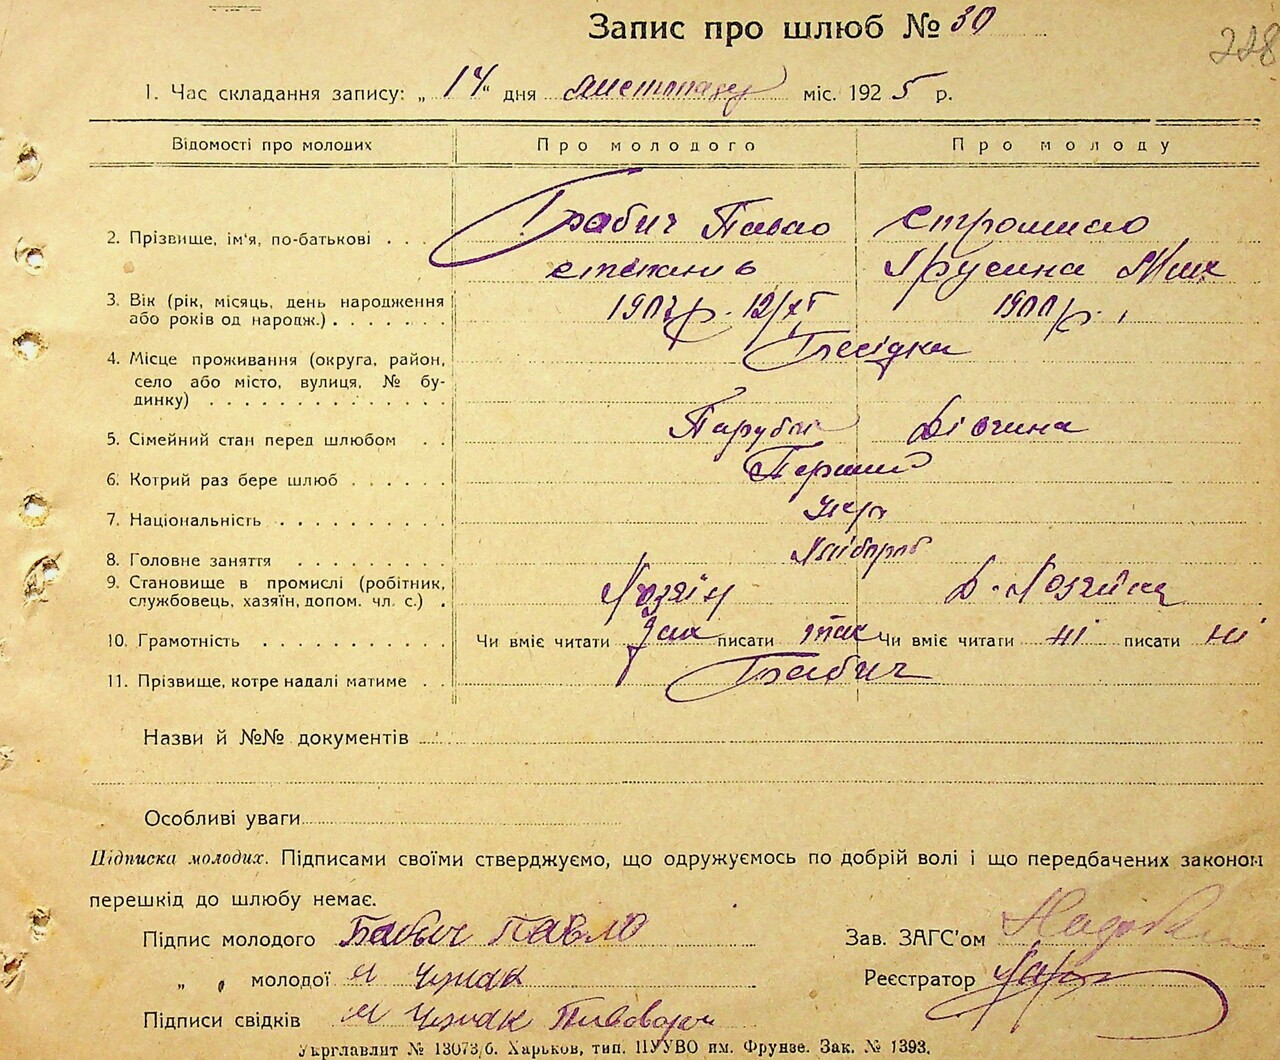 Запис про шлюб № 30
228
1. Час складання запису: „ 14 “ дня листопаду міс. 1925 р.
Відомості про молодих Про молодого Про молоду
2. Прізвище, ім'я, по-батькові . . . Бабич Павло
3. Вік (рік, місяць, день народження 1902р. 12/XI 1900р.
або років од народж.) . . . . . . .
4. Місце проживання (округа, район, Бесідка
село або місто, вулиця, № бу-
динку) . . . . . . . . . . . . . .
5. Сімейний стан перед шлюбом . . Парубок Дівчина
6. Котрий раз бере шлюб . . . . . . Перший
7. Національність . . . . . . . . . . Укр
8. Головне заняття . . . . . . . Хлібороб
9. Становище в промислі (робітник, Хозяїн Д. Хозяйка
службовець, хазяїн, допом. чл. с.) .
10. Грамотність . . . . . . . . . . . Чи вміє читати так писати так Чи вміє читати ні писати ні
11. Прізвище, котре надалі матиме . Бабич
Назви й №№ документів
Особливі уваги
Підписка молодих. Підписами своїми стверджуємо, що одружуємось по добрій волі і що передбачених законом
перешкід до шлюбу немає.
Підпис молодого Бабич Павло Зав. ЗАГС'ом
„ „ молодої Реєстратор
Підписи свідків
Укрглавлит № 13073/б. Харьков, тип. ПУУВО им. Фрунзе. Зак. № 1393.